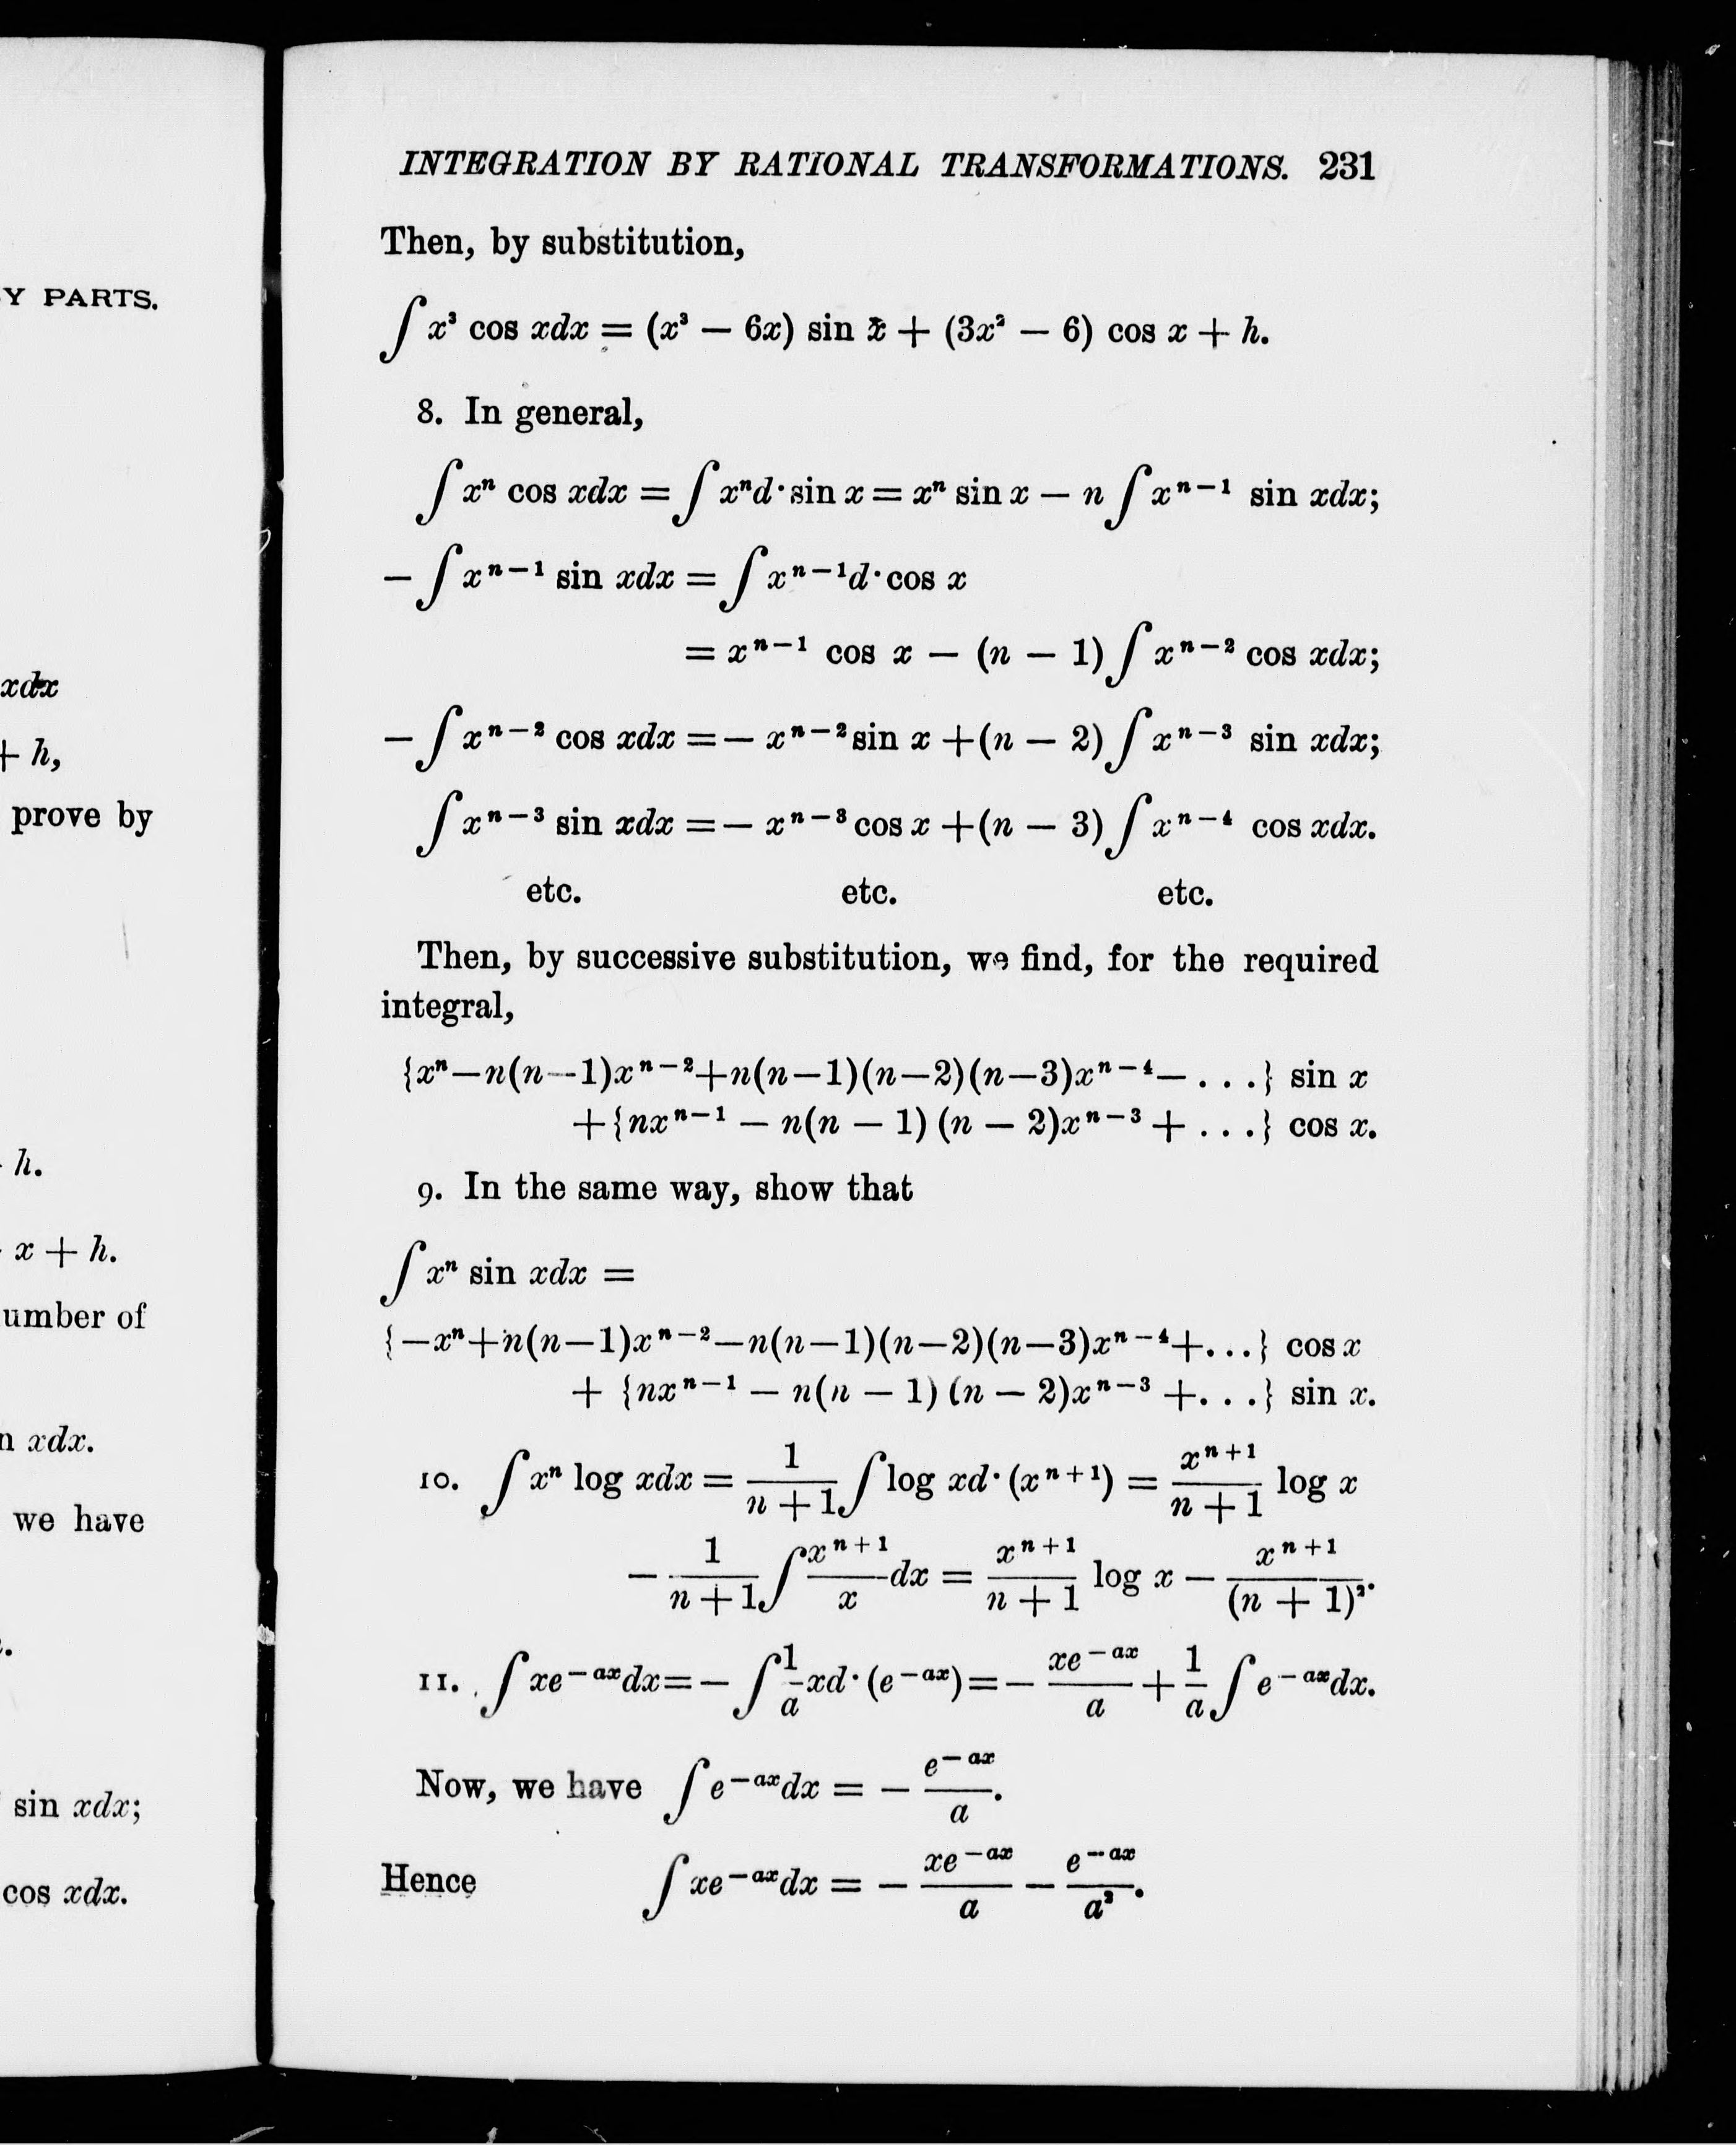 Y PARTS.
xdx
+ h,
prove by
h.
x + h.
umber of
n xdx.
we have
sin xdx;
cos xdx.
INTEGRATION BY RATIONAL TRANSFORMATIONS. 231
Then, by substitution,
∫ x³ cos xdx = (x³ − 6x) sin x + (3x² − 6) cos x + h.
8. In general,
∫ xⁿ cos xdx = ∫ xⁿd·sin x = xⁿ sin x − n ∫ xⁿ⁻¹ sin xdx;
− ∫ xⁿ⁻¹ sin xdx = ∫ xⁿ⁻¹d·cos x
= xⁿ⁻¹ cos x − (n − 1) ∫ xⁿ⁻² cos xdx;
− ∫ xⁿ⁻² cos xdx = − xⁿ⁻² sin x + (n − 2) ∫ xⁿ⁻³ sin xdx;
∫ xⁿ⁻³ sin xdx = − xⁿ⁻³ cos x + (n − 3) ∫ xⁿ⁻⁴ cos xdx.
etc. etc. etc.
Then, by successive substitution, we find, for the required
integral,
{xⁿ−n(n−1)xⁿ⁻²+n(n−1)(n−2)(n−3)xⁿ⁻⁴− . . .} sin x
+{nxⁿ⁻¹ − n(n − 1) (n − 2)xⁿ⁻³ + . . .} cos x.
9. In the same way, show that
∫ xⁿ sin xdx =
{−xⁿ+n(n−1)xⁿ⁻²−n(n−1)(n−2)(n−3)xⁿ⁻⁴+...} cos x
+ {nxⁿ⁻¹ − n(n − 1) (n − 2)xⁿ⁻³ +. . .} sin x.
10. ∫ xⁿ log xdx = 1/(n + 1) ∫ log xd·(xⁿ⁺¹) = xⁿ⁺¹/(n + 1) log x
− 1/(n + 1) ∫ xⁿ⁺¹/x dx = xⁿ⁺¹/(n + 1) log x − xⁿ⁺¹/(n + 1)².
11. ∫ xe⁻ᵃˣdx = − ∫ 1/a xd·(e⁻ᵃˣ) = − xe⁻ᵃˣ/a + 1/a ∫ e⁻ᵃˣdx.
Now, we have ∫ e⁻ᵃˣdx = − e⁻ᵃˣ/a.
Hence ∫ xe⁻ᵃˣdx = − xe⁻ᵃˣ/a − e⁻ᵃˣ/a².